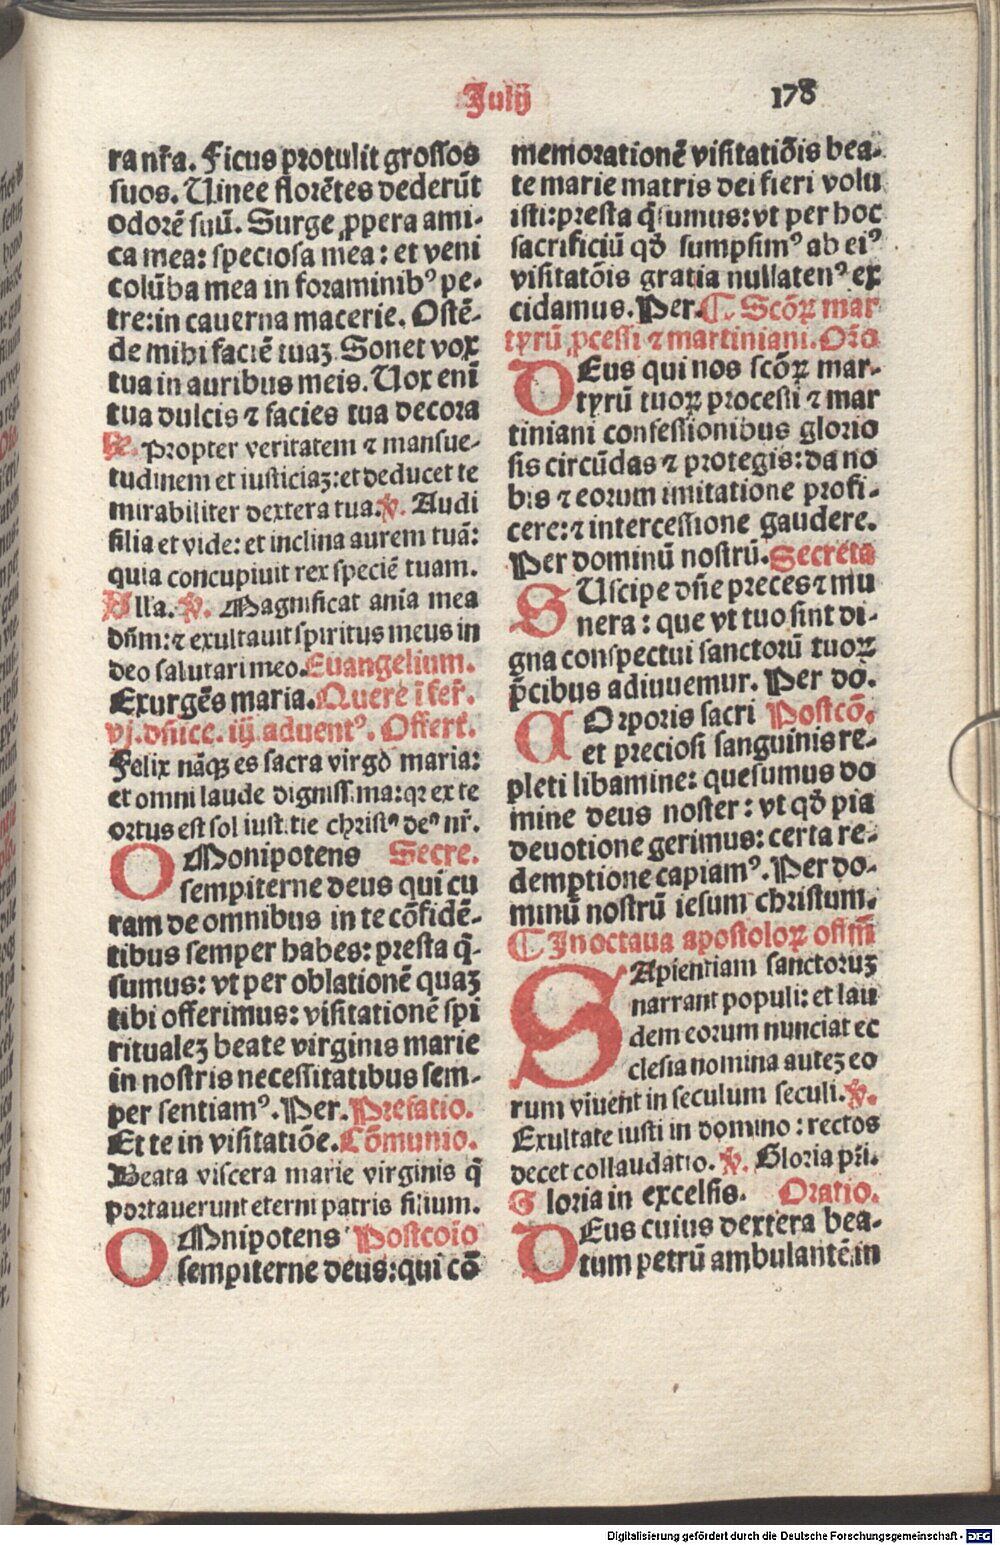 Julij
178
ra nr̃a. Ficus protulit grossos
suos. Uinee florẽtes dederũt
odorẽ suũ. Surge ꝓpera ami-
ca mea: speciosa mea: et veni
colũba mea in foraminibꝰ pe-
tre: in cauerna macerie. Ostẽ-
de mihi faciẽ tuaꝫ. Sonet vox
tua in auribus meis. Uox enĩ
tua dulcis ⁊ facies tua decora
Propter veritatem ⁊ mansue-
tudinem et iusticiaꝫ: et deducet te
mirabiliter dextera tua. ℣. Audi
filia et vide: et inclina aurem tuã:
quia concupiuit rex speciẽ tuam.
Alla. ℣. Magnificat anĩa mea
dñm: ⁊ exultauit spiritus meus in
deo salutari meo. Euangelium.
Exurgẽs maria. Quere ĩ fer̃.
vj. dñice. iij. aduentꝰ. Offert̃.
Felix nãqꝫ es sacra virgo maria:
et omni laude dignissima: qꝛ ex te
ortus est sol iusticie christꝰ deꝰ nr̃.
OMonipotens Secre.
sempiterne deus qui cu
ram de omnibus in te cõfidẽ-
tibus semper habes: presta q̃-
sumus: vt per oblationẽ quaꝫ
tibi offerimus: visitationẽ spi
ritualeꝫ beate virginis marie
in nostris necessitatibus sem-
per sentiamꝰ. Per. Prefatio.
Et te in visitatiõe. Cõmunio.
Beata viscera marie virginis q̃
portauerunt eterni patris filium.
OMnipotens Postcoĩo
sempiterne deus: qui cõ
memorationẽ visitatiõis bea-
te marie matris dei fieri volu
isti: presta q̃sumus: vt per hoc
sacrificiũ qď sumpsimꝰ ab eiꝰ
visitatõis gratia nullatenꝰ ex
cidamus. Per. ¶ Scõꝝ mar
tyrũ ꝓcessi ⁊ martiniani. Orõ
DEus qui nos scõꝝ mar-
tyrũ tuoꝝ processi ⁊ mar
tiniani confessionibus glorio
sis circũdas ⁊ protegis: da no
bis ⁊ eorum imitatione profi-
cere: ⁊ intercessione gaudere.
Per dominũ nostrũ. Secreta
SUscipe dñe preces ⁊ mu
nera: que vt tuo sint di-
gna conspectui sanctorũ tuoꝝ
p̃cibus adiuuemur. Per do.
COrporis sacri Postcõ.
et preciosi sanguinis re-
pleti libamine: quesumus do
mine deus noster: vt qď pia
deuotione gerimus: certa re-
demptione capiamꝰ. Per do-
minũ nostrũ iesum christum.
¶ In octaua apostoloꝝ offm̃
SApientiam sanctoruꝫ
narrant populi: et lau
dem eorum nunciat ec
clesia nomina auteꝫ eo
rum viuent in seculum seculi. ℣.
Exultate iusti in domino: rectos
decet collaudatio. ℣. Gloria pr̃i.
Gloria in excelsis. Oratio.
DEus cuius dextera bea-
tum petrũ ambulantẽ in
Digitalisierung gefördert durch die Deutsche Forschungsgemeinschaft - DFG